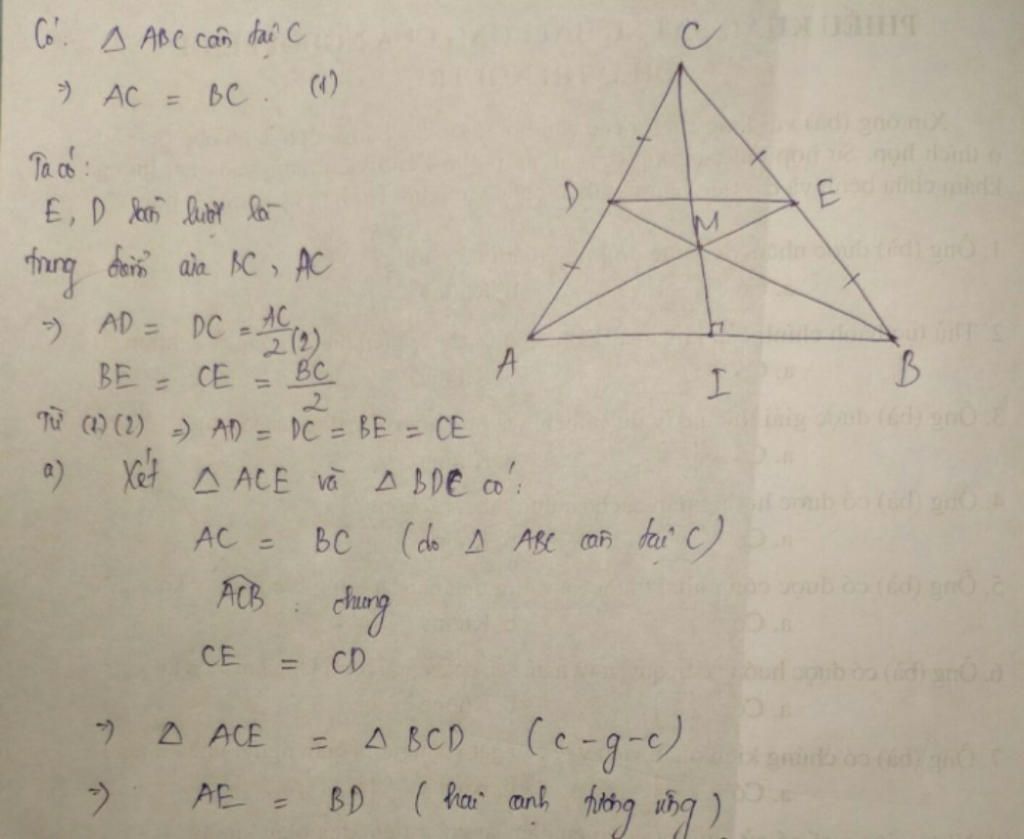 Có: △ ABC cân tại C
⇒ AC = BC. (1)
Ta có:
E, D lần lượt là
trung điểm của BC, AC
⇒ AD = DC = AC/2 (2)
BE = CE = BC/2
Từ (1) (2) ⇒ AD = DC = BE = CE
a) Xét △ ACE và △ BDC có:
AC = BC (do △ ABC cân tại C)
ACB : chung
CE = CD
⇒ △ ACE = △ BCD (c-g-c)
⇒ AE = BD (hai cạnh tương ứng)
C
D
E
M
A
I
B